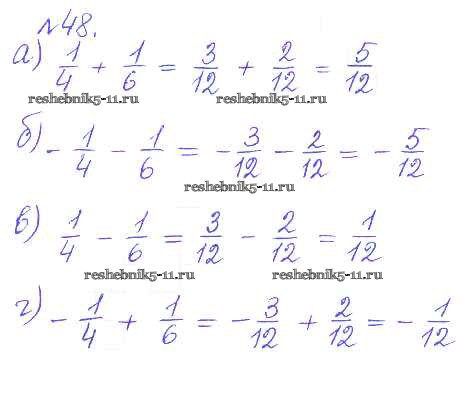 №48.
а) 1/4 + 1/6 = 3/12 + 2/12 = 5/12
reshebnik5-11.ru reshebnik5-11.ru
б) - 1/4 - 1/6 = - 3/12 - 2/12 = - 5/12
reshebnik5-11.ru
в) 1/4 - 1/6 = 3/12 - 2/12 = 1/12
reshebnik5-11.ru
г) - 1/4 + 1/6 = - 3/12 + 2/12 = - 1/12